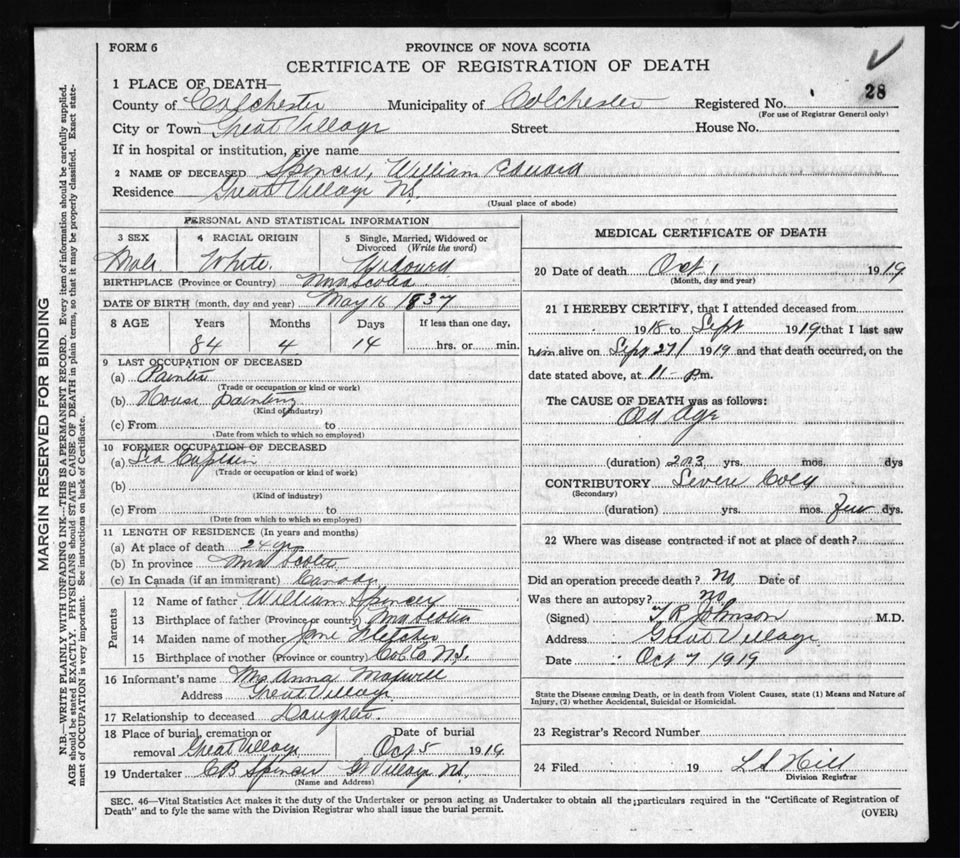 FORM 6
PROVINCE OF NOVA SCOTIA
CERTIFICATE OF REGISTRATION OF DEATH
28
1 PLACE OF DEATH—
County of Colchester Municipality of Colchester Registered No.
(For use of Registrar General only)
City or Town Great Village Street House No.
If in hospital or institution, give name
2 NAME OF DECEASED Spencer, William Edward
Residence Great Village N.S.
(Usual place of abode)
PERSONAL AND STATISTICAL INFORMATION
3 SEX 4 RACIAL ORIGIN 5 Single, Married, Widowed or Divorced (Write the word)
Male White Widowed
BIRTHPLACE (Province or Country) Nova Scotia
DATE OF BIRTH (month, day and year) May 16 1837
8 AGE Years Months Days If less than one day,
84 4 14 hrs. or min.
9 LAST OCCUPATION OF DECEASED
(a) Painter
(Trade or occupation or kind or work)
(b) House Painting
(Kind of industry)
(c) From to
(Date from which to which so employed)
10 FORMER OCCUPATION OF DECEASED
(a) Sea Captain
(Trade or occupation or kind of work)
(b)
(Kind of industry)
(c) From to
(Date from which to which so employed)
11 LENGTH OF RESIDENCE (In years and months)
(a) At place of death 24 yrs
(b) In province Nova Scotia
(c) In Canada (if an immigrant) Canada
Parents
12 Name of father William Spencer
13 Birthplace of father (Province or country) Nova Scotia
14 Maiden name of mother Jane Fletcher
15 Birthplace of mother (Province or country) Col. Co. N.S.
16 Informant's name Mrs Anna Maxwell
Address Great Village
17 Relationship to deceased Daughter
18 Place of burial, cremation or removal Great Village Date of burial Oct 5 1919
19 Undertaker C B Spencer Gt Village N.S.
(Name and Address)
MEDICAL CERTIFICATE OF DEATH
20 Date of death Oct 1 1919
(Month, day and year)
21 I HEREBY CERTIFY, that I attended deceased from
1918 to Sept 1919 that I last saw
him alive on Sept 27 1919 and that death occurred, on the
date stated above, at 11 - P.m.
The CAUSE OF DEATH was as follows:
Old Age
(duration) 2 or 3 yrs. mos. dys
CONTRIBUTORY Severe Cold
(Secondary)
(duration) yrs. mos. few dys.
22 Where was disease contracted if not at place of death?
Did an operation precede death? No Date of
Was there an autopsy? No
(Signed) T R Johnson M.D.
Address Great Village
Date Oct 7 1919
State the Disease causing Death, or in death from Violent Causes, state (1) Means and Nature of
Injury, (2) whether Accidental, Suicidal or Homicidal.
23 Registrar's Record Number
24 Filed 19 L S Hill
Division Registrar
SEC. 46—Vital Statistics Act makes it the duty of the Undertaker or person acting as Undertaker to obtain all the particulars required in the "Certificate of Registration of
Death" and to fyle the same with the Division Registrar who shall issue the burial permit.
(OVER)
MARGIN RESERVED FOR BINDING
N.B.—WRITE PLAINLY WITH UNFADING INK—THIS IS A PERMANENT RECORD. Every item of information should be carefully supplied.
AGE should be stated EXACTLY. PHYSICIANS should STATE CAUSE OF DEATH in plain terms, so that it may be properly classified. Exact state-
ment of OCCUPATION is very important. See instructions on back of Certificate.